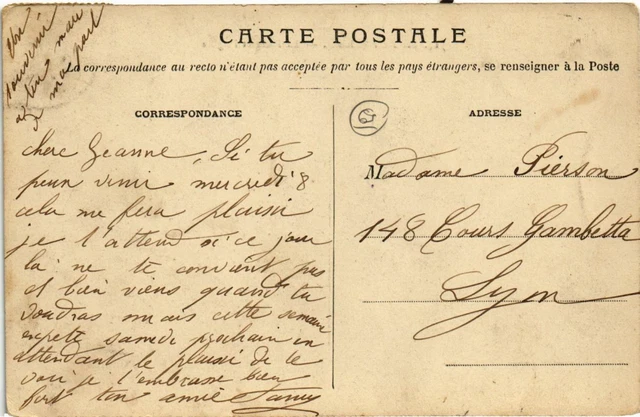 Un
souvenir
à ton mari
de ma part
CARTE POSTALE
La correspondance au recto n'étant pas acceptée par tous les pays étrangers, se renseigner à la Poste
CORRESPONDANCE
chere Jeanne, Si tu
peux venir mercredi 8
cela me fera plaisir
je t'attend si ce jour
là ne te convient pas
et bien viens quand tu
voudras mais cette semaine
excepté samedi prochain en
attendant le plaisir de te
voir je t'embrasse bien
fort ton amie Fanny
ADRESSE
Madame Piérson
148 Cours Gambetta
Lyon